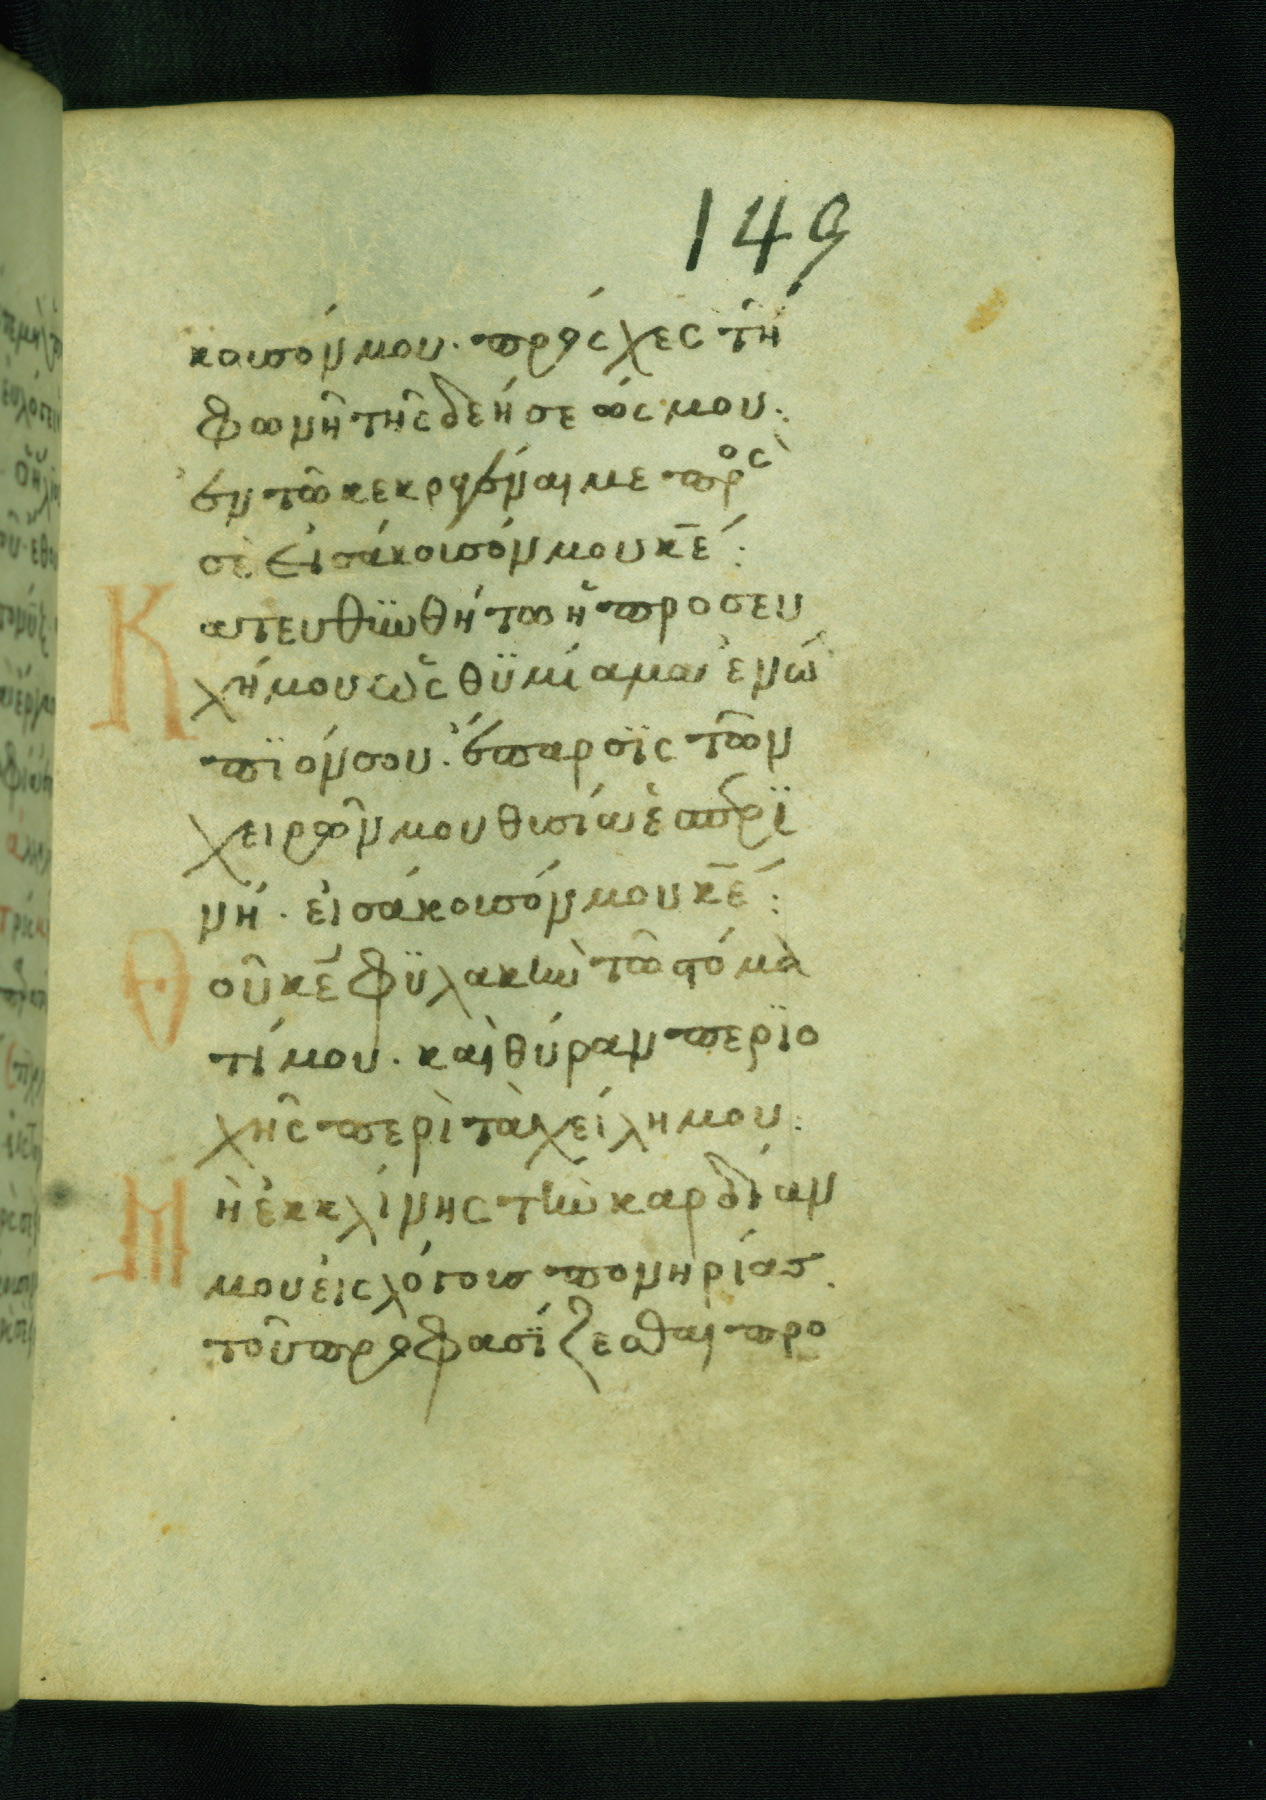 149
κουσόν μου. πρόσχες τῆ
φωνῆ τῆς δεήσεώς μου.
ἐν τῶ κεκραγέναι με πρὸς
σὲ εἰσάκουσόν μου κ̅ε̅:
Κατευθυνθήτω ἡ προσευ
χή μου ὡς θϋμίαμα ἐνώ
πϊόν σου. ἔπαρσϊς τῶν
χειρῶν μου θυσία ἑσπερϊ
νή. εἰσάκουσόν μου κ̅ε̅:
Θοῦ κ̅ε̅ φϋλακὴν τῶ στόμα
τί μου. καὶ θύραν περϊο
χῆς περὶ τὰ χείλη μου:
Μὴ ἐκκλίνης τὴν καρδίαν
μου εἰς λόγους πονηρίας.
τοῦ προφασϊζεσθαι προ